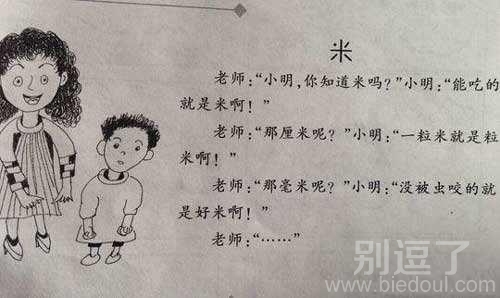 米
老师:“小明,你知道米吗?”小明:“能吃的
就是米啊!”
老师:“那厘米呢?”小明:“一粒米就是粒
米啊!”
老师:“那毫米呢?”小明:“没被虫咬的就
是好米啊!”
老师:“……”
别逗了
www.biedoul.com